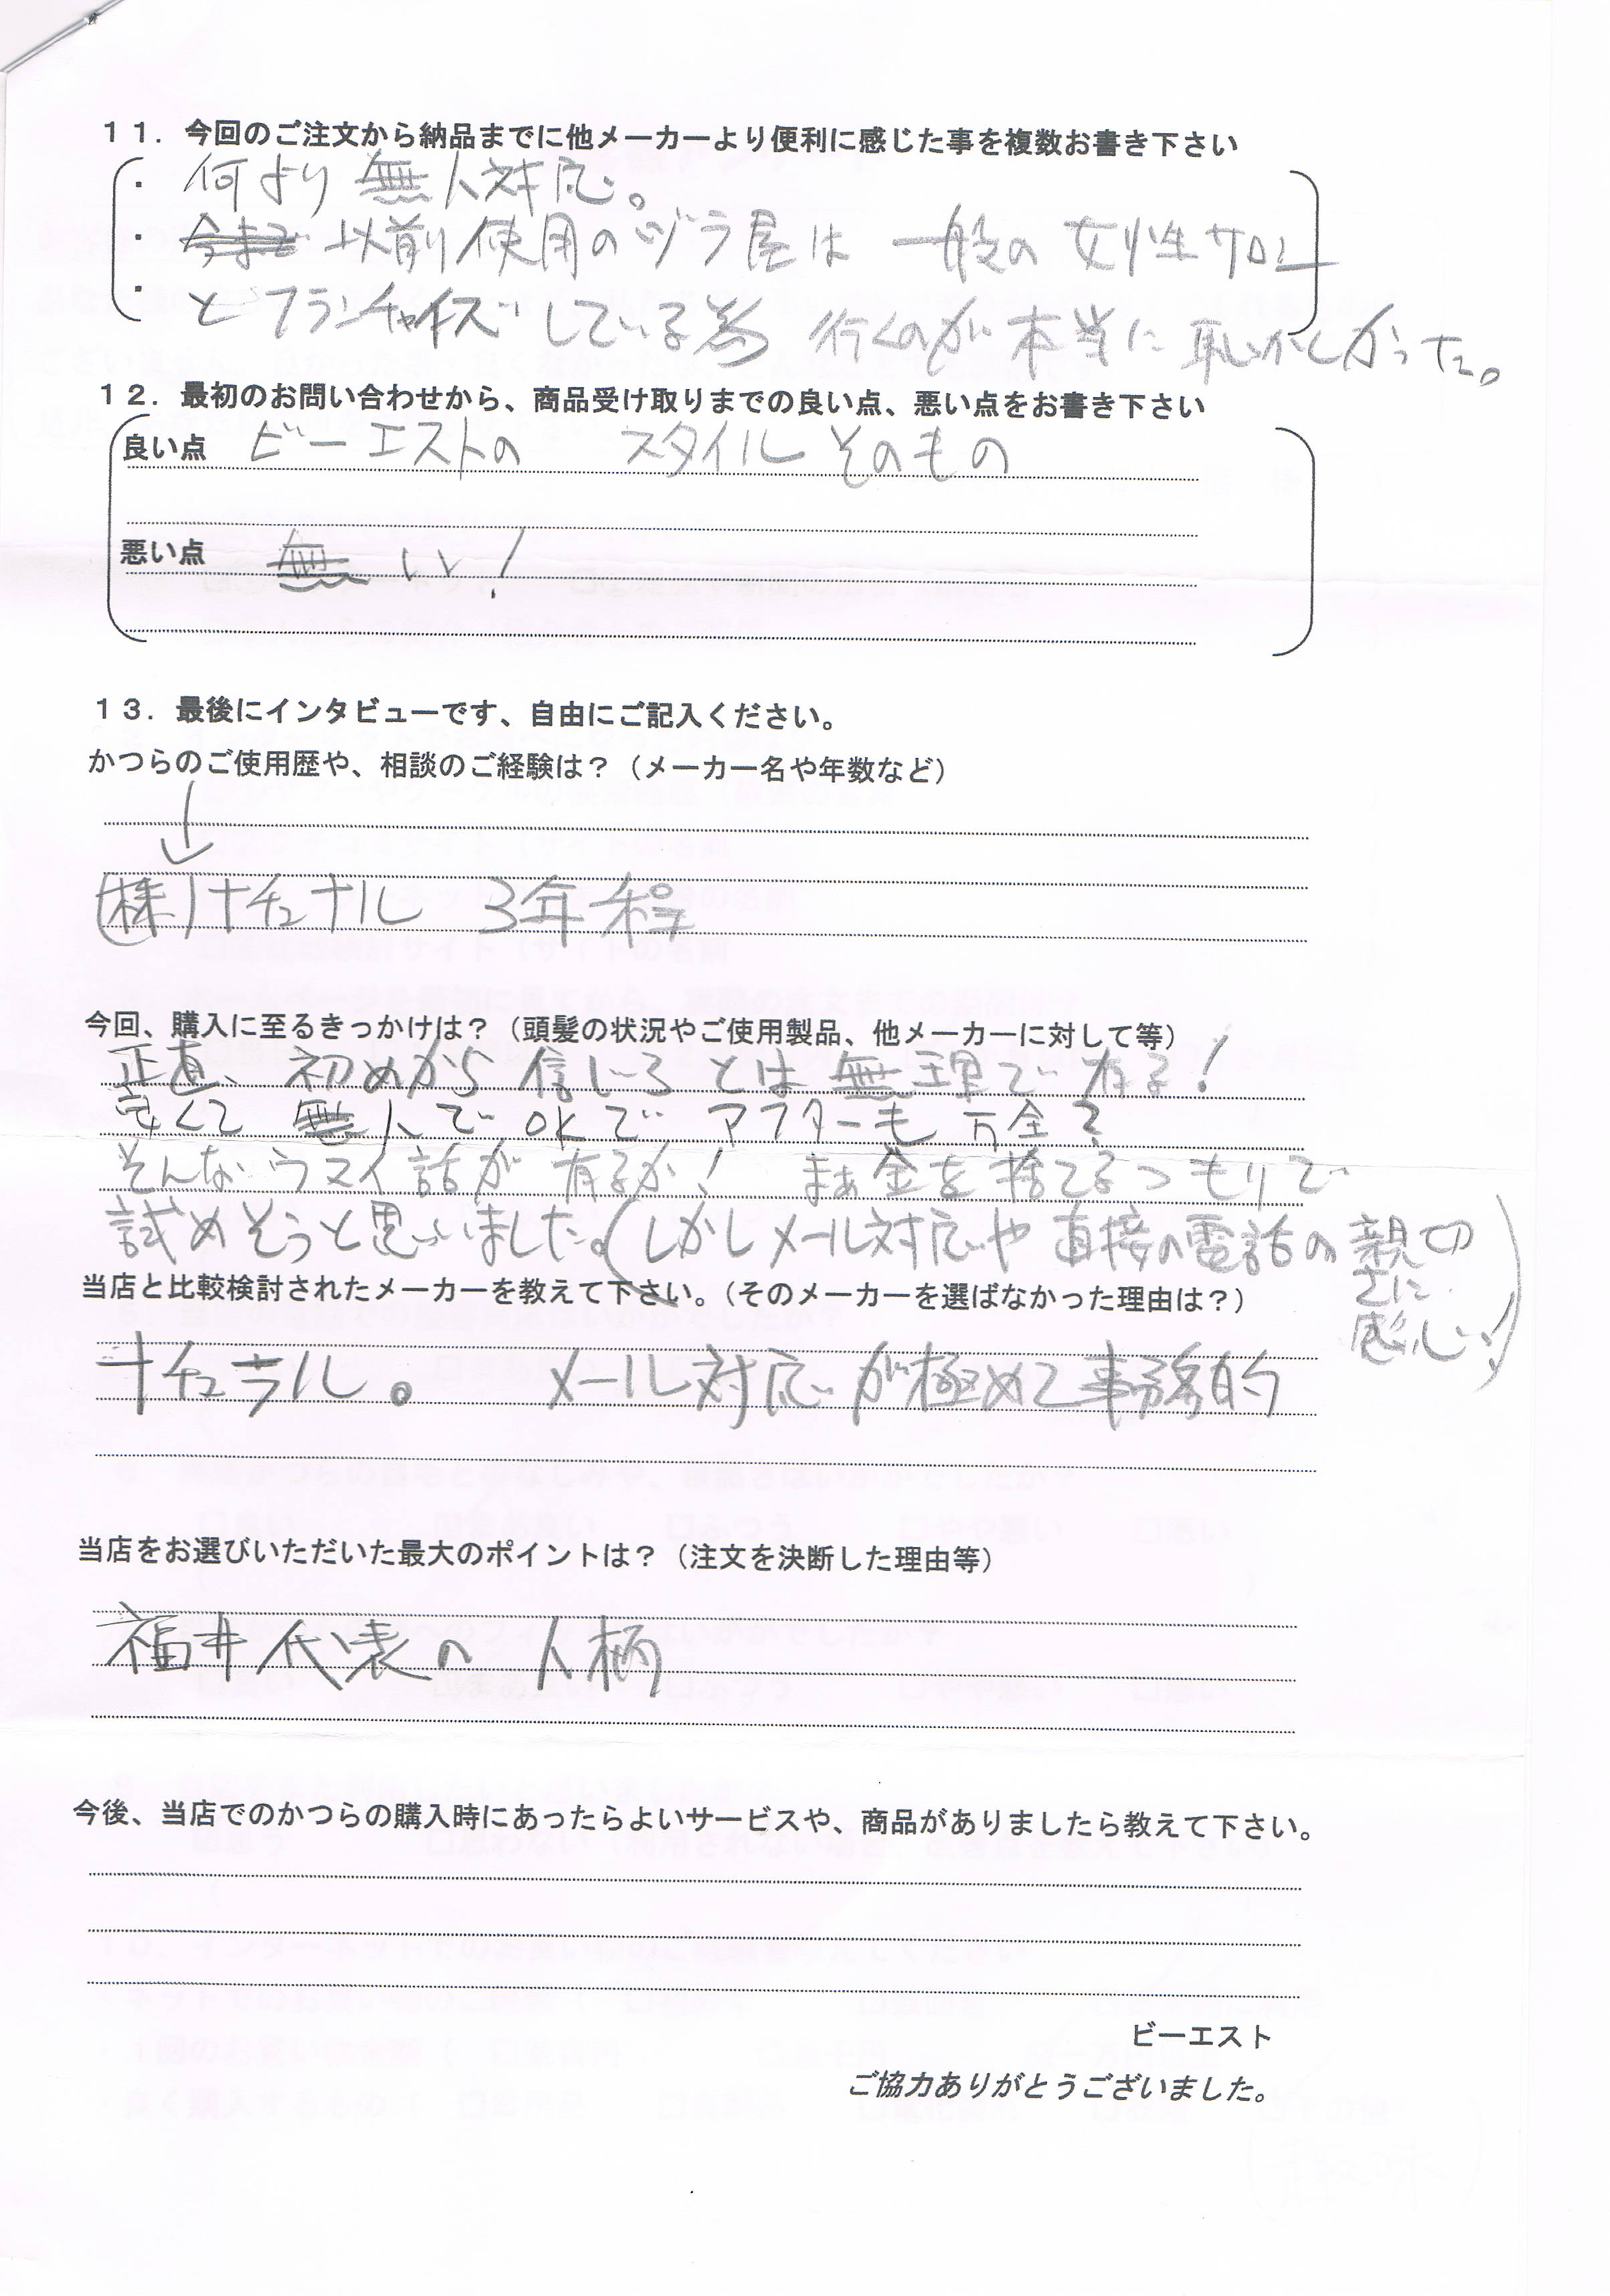 １１．今回のご注文から納品までに他メーカーより便利に感じた事を複数お書き下さい
・ 何より 無人対応。
・ 今まで 以前使用のヅラ屋は 一般の 女性サロン
・ とフランチャイズしている為 行くのが 本当に 恥ずかしかった。
１２．最初のお問い合わせから、商品受け取りまでの良い点、悪い点をお書き下さい
良い点 ビーエストの スタイルそのもの
悪い点 無い！
１３．最後にインタビューです、自由にご記入ください。
かつらのご使用歴や、相談のご経験は？（メーカー名や年数など）
↓
(株)ナチュナル 3年程
今回、購入に至るきっかけは？（頭髪の状況やご使用製品、他メーカーに対して等）
正直、初めから 信じろ とは 無理で 有る！
安くて 無人で OKで アフターも 万全？
そんな ウマイ話が 有るか！ まぁ金を捨てるつもりで
試めそうと思いました。(しかしメール対応や 直接の電話の 親切
さに
感心！)
当店と比較検討されたメーカーを教えて下さい。（そのメーカーを選ばなかった理由は？）
ナチュラル。 メール対応が極めて事務的
当店をお選びいただいた最大のポイントは？（注文を決断した理由等）
福井代表の 人柄
今後、当店でのかつらの購入時にあったらよいサービスや、商品がありましたら教えて下さい。
ビーエスト
ご協力ありがとうございました。